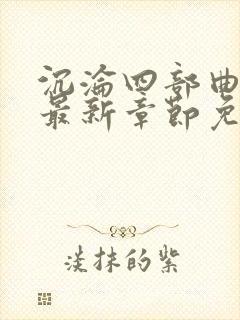 沉沦四部曲
最新章節免
淡抹的紫